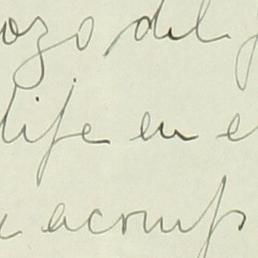 ozo del
life en e
a acomp